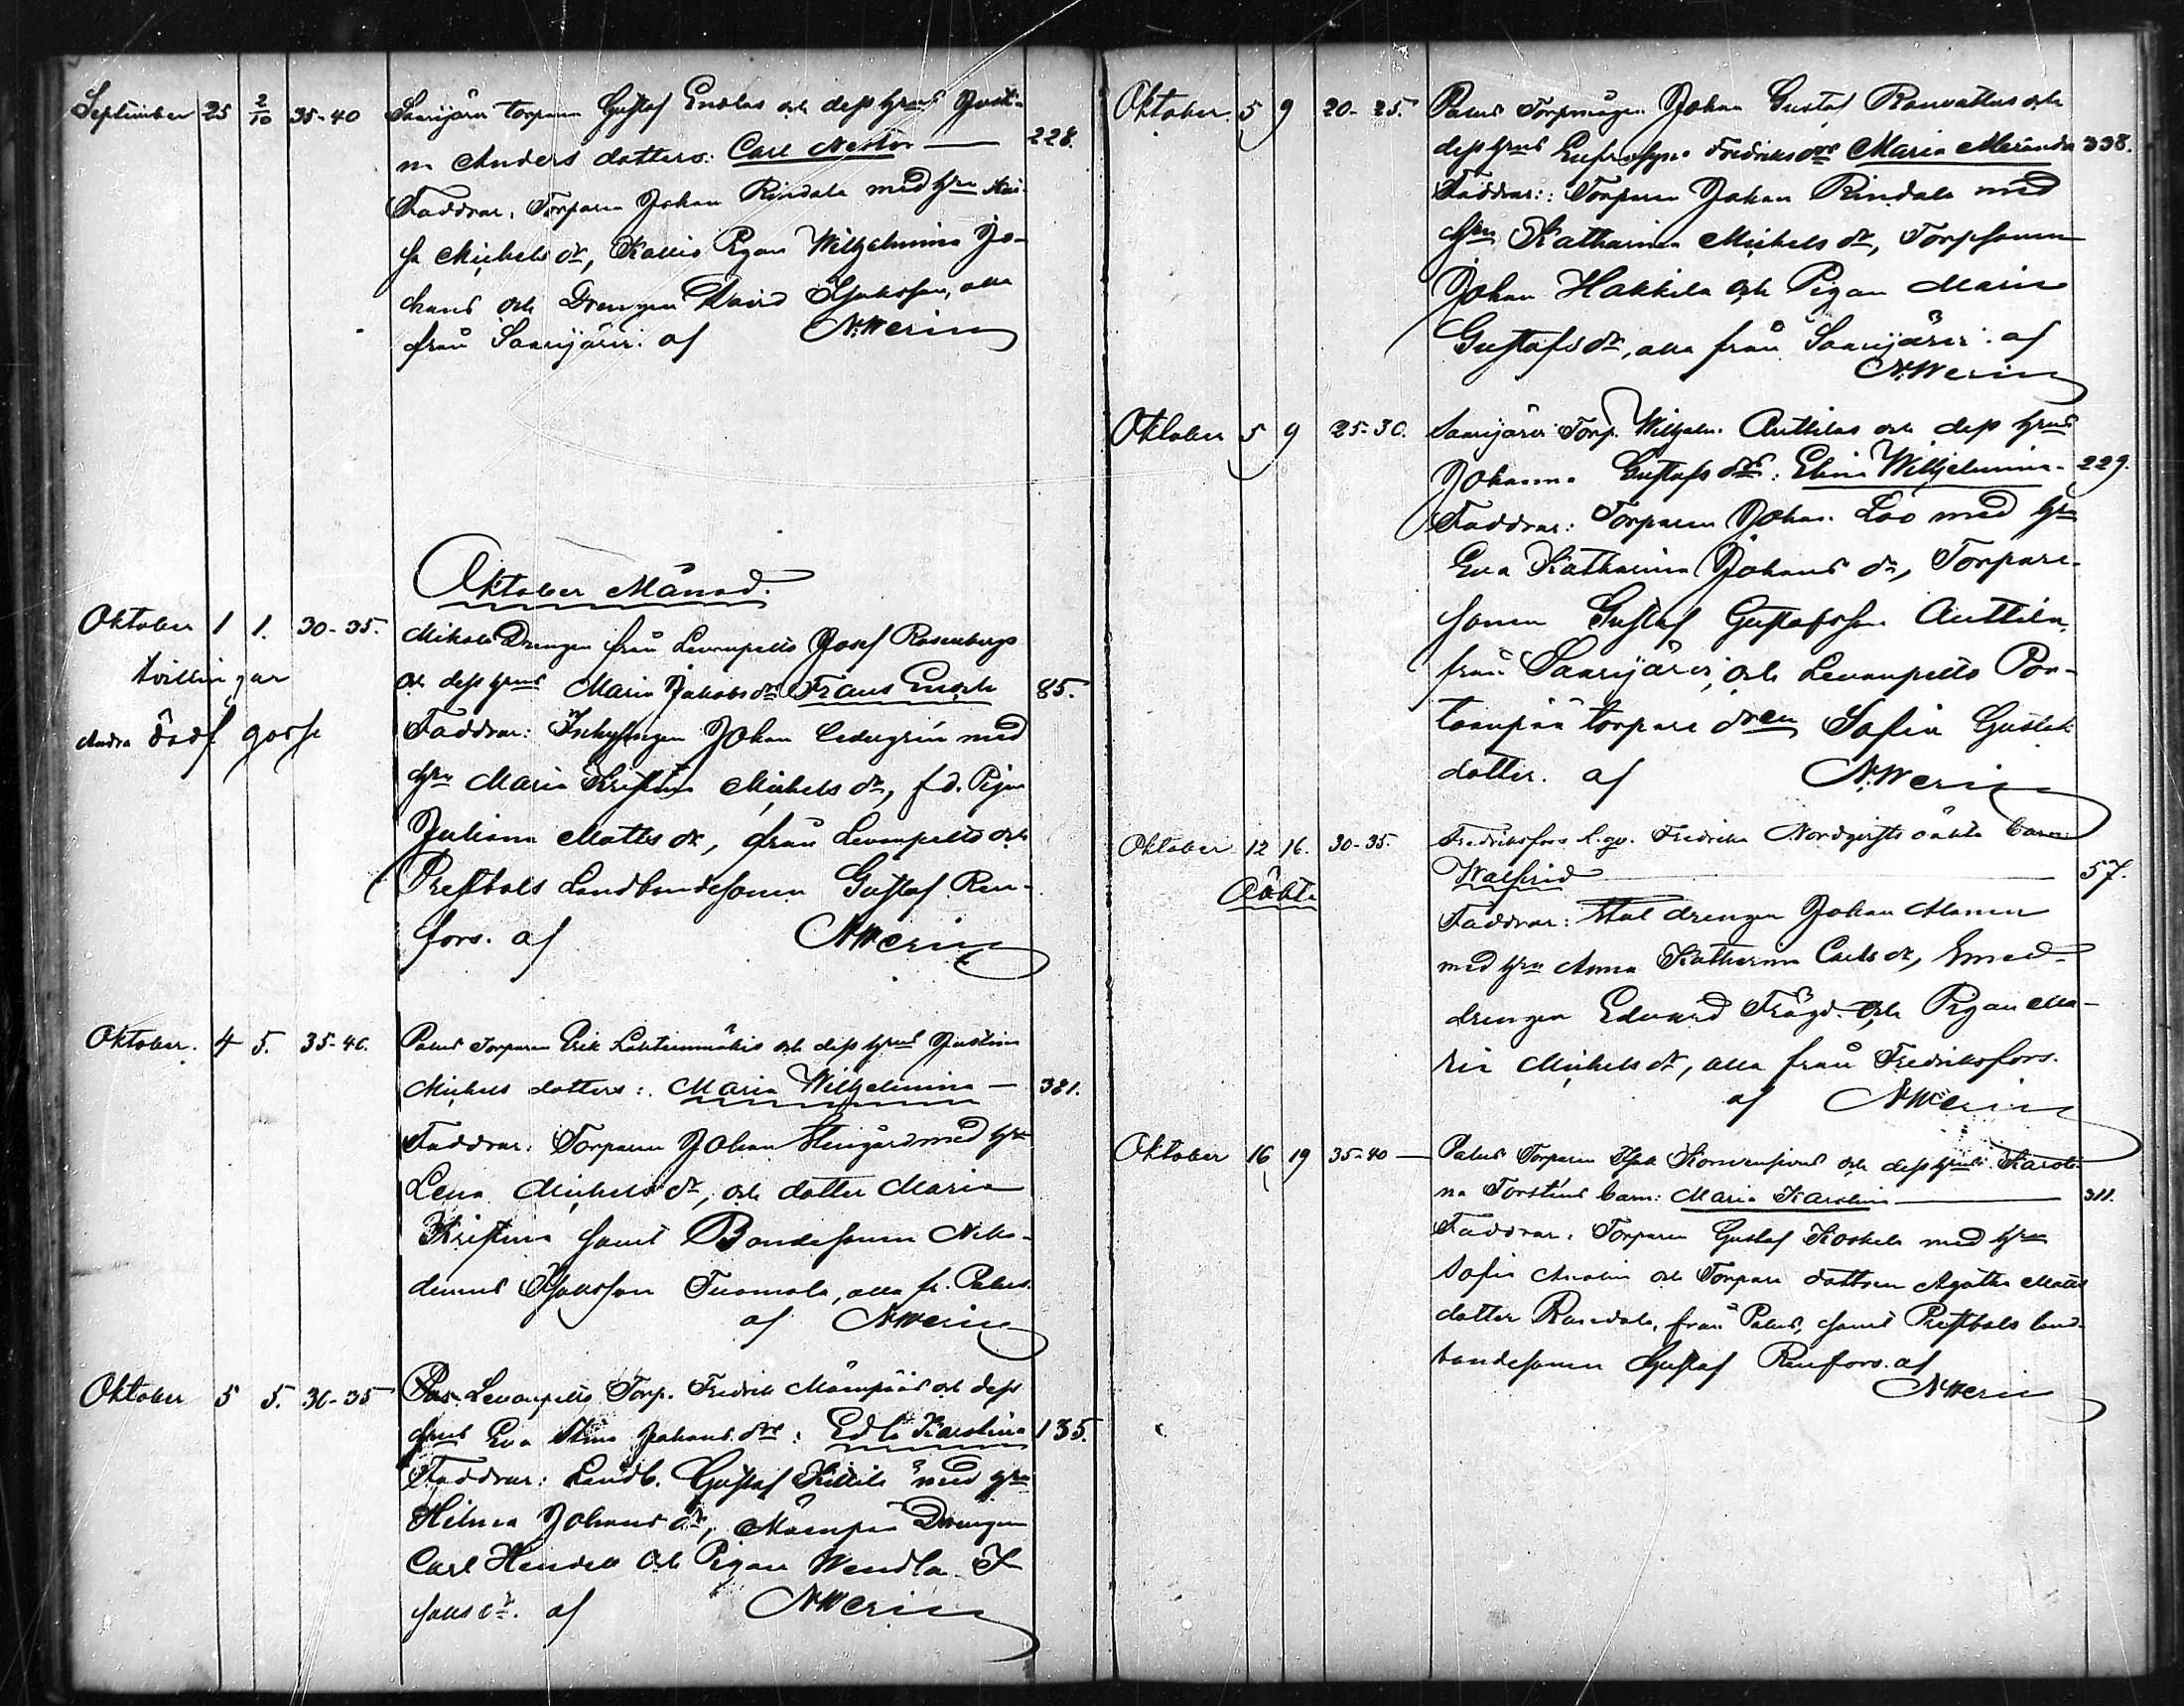 September 25 2/10 35-40 Saarijärvi torparen Gustaf Enolas och dess hrus Justi-
na Anders dotters: Carl Nestor — 228.
Faddrar: Torparen Johan Rindala med hru Kai-
sa Michels dr, Kallis Pigan Wilhelmina Jo-
hans och Drengen David Isaksson, alla
från Saarijärvi. af N. Werin
Oktober Månad.
Oktober 1 1. 30-35. Mikola Drengen från Levanpelto Josef Rosenbergs
tvillingar
och dess hrus Maria Jakobs drs Frans Enok 85.
andra dödf. gosse
Faddrar: Inhysingen Johan Cedergrén med
hru Maria Kristina Michels dr, f.d. Pigan
Juliana Matts dr, från Levanpelto och
Prestbols Landbondesonen Gustaf Ren-
fors. af N. Werin
Oktober. 4 5. 35-40. Palus Torparen Erik Lähteenmäkis och dess hrus Justina
Michels dotters: Maria Wilhelmina — 381.
Faddrar: Torparen Johan Stengård med hru
Lena Michels dr, och dotter Maria
Kristina samt Bondesonen Niko-
demus Isaksson Tuomola, alla fr. Palus.
af N. Werin
Oktober 5 5. 30-35 Levanpelto Torp. Fredrik Mäenpääs och dess
hrus Eva Stina Johans drs: Edla Karolina 135.
Faddrar: Landb. Gustaf Kittilä med hru
Hilma Johans dr, Mäenpää Drengen
Carl Hendell och Pigan Wendla I-
saks dr. af N. Werin
Oktober. 5 9 20-25. Palus Torpmågen Johan Gustaf Ranvattus och
dess hrus Eufrosyne Fredriks drs Maria Meranda 338.
Faddrar: Torparen Johan Rindala med
hru Katharina Michels dr, Torpsonen
Johan Hakkila och Pigan Maria
Gustafs dr, alla från Saarijärvi. af
N. Werin
Oktober 5 9 25-30. Saarijärvi Torp. Wilhelm Anttilas och dess hrus
Johanna Gustafs drs: Elina Wilhelmina - 229.
Faddrar: Torparen Johan Loo med hru
Eva Katharina Johans dr, Torpare-
sonen Gustaf Gustafsson Anttila,
från Saarijärvi, och Levanpelto Por-
taanpää torpare dren Sofia Gustafs
dotter. af N. Werin
Oktober 12 16. 30-35. Fredriksfors Fredrika Nordqvists oäkta barn:
Walfrid — 57.
Oäkta
Faddrar: Stal drengen Johan Alanen
med hru Anna Katharina Carls dr, Smed-
drengen Edvard Frögd. och Pigan Ma-
ria Michels dr, alla från Fredriksfors.
af N. Werin
Oktober 16 19 35-40 — Palus Torparen Isak Korvensivus och dess hrus Karoli-
na Torsténs barn: Maria Karolina — 311.
Faddrar: Torparen Gustaf Koskela med hru
Sofia och Torpare dottren Agatha Matts
dotter Rosendala, från Palus, samt Prestbols land-
bondesonen Gustaf Renfors. af
N. Werin